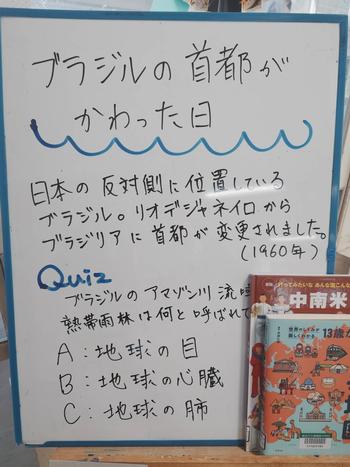 ブラジルの首都が
かわった日
日本の反対側に位置している
ブラジル。リオデジャネイロから
ブラジリアに首都が変更されました。
(1960年)
Quiz
ブラジルのアマゾン川流
熱帯雨林は何と呼ばれて
A:地球の目
B:地球の心臓
C:地球の肺
行ってみたいな あんな国こん
中南米
世界のしくみが
楽しくわかる
13歳